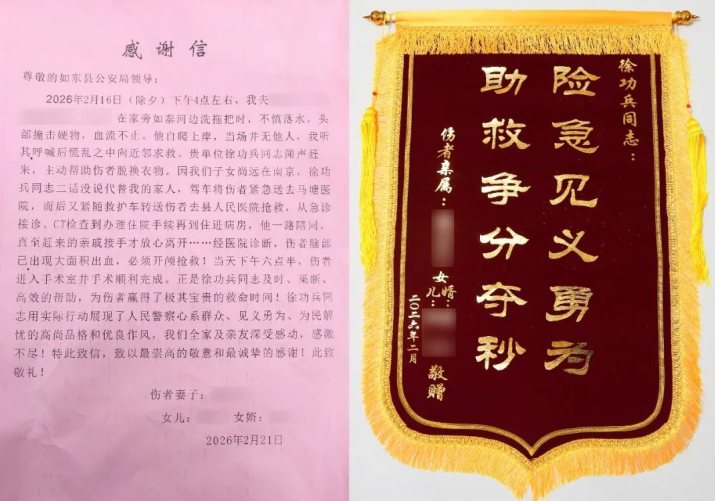 感谢信
尊敬的如东县公安局领导：
2026年2月16日（除夕）下午4点左右，我夫
在家旁如泰河边洗拖把时，不慎落水，头
部撞击硬物，血流不止。他自爬上岸，当场并无他人，我听
其呼喊后慌乱之中向近邻求救。贵单位徐功兵同志闻声赶
来，主动帮助伤者脱换衣物。因我们子女尚远在南京，徐功
兵同志二话没说代替我的家人，驾车将伤者紧急送去马塘医
院，而后又紧随救护车转送伤者去县人民医院抢救，从急诊
接诊、CT检查到办理住院手续再到住进病房，他一路陪同，
直至赶来的亲戚接手才放心离开……经医院诊断，伤者脑部
已出现大面积出血，必须开颅抢救！当天下午六点半，伤者
进入手术室并手术顺利完成。正是徐功兵同志及时、果断、
高效的帮助，为伤者赢得了极其宝贵的救命时间！徐功兵同
志用实际行动展现了人民警察心系群众、见义勇为、为民解
忧的高尚品格和优良作风，我们全家及亲友深受感动，感激
不尽！特此致信，致以最崇高的敬意和最诚挚的感谢！此致
敬礼！
伤者妻子：
女儿： 女婿：
2026年2月21日
徐功兵同志：
险急见义勇为
助救争分夺秒
伤者亲属：
女婿：
女儿：
敬赠
二〇二六年二月